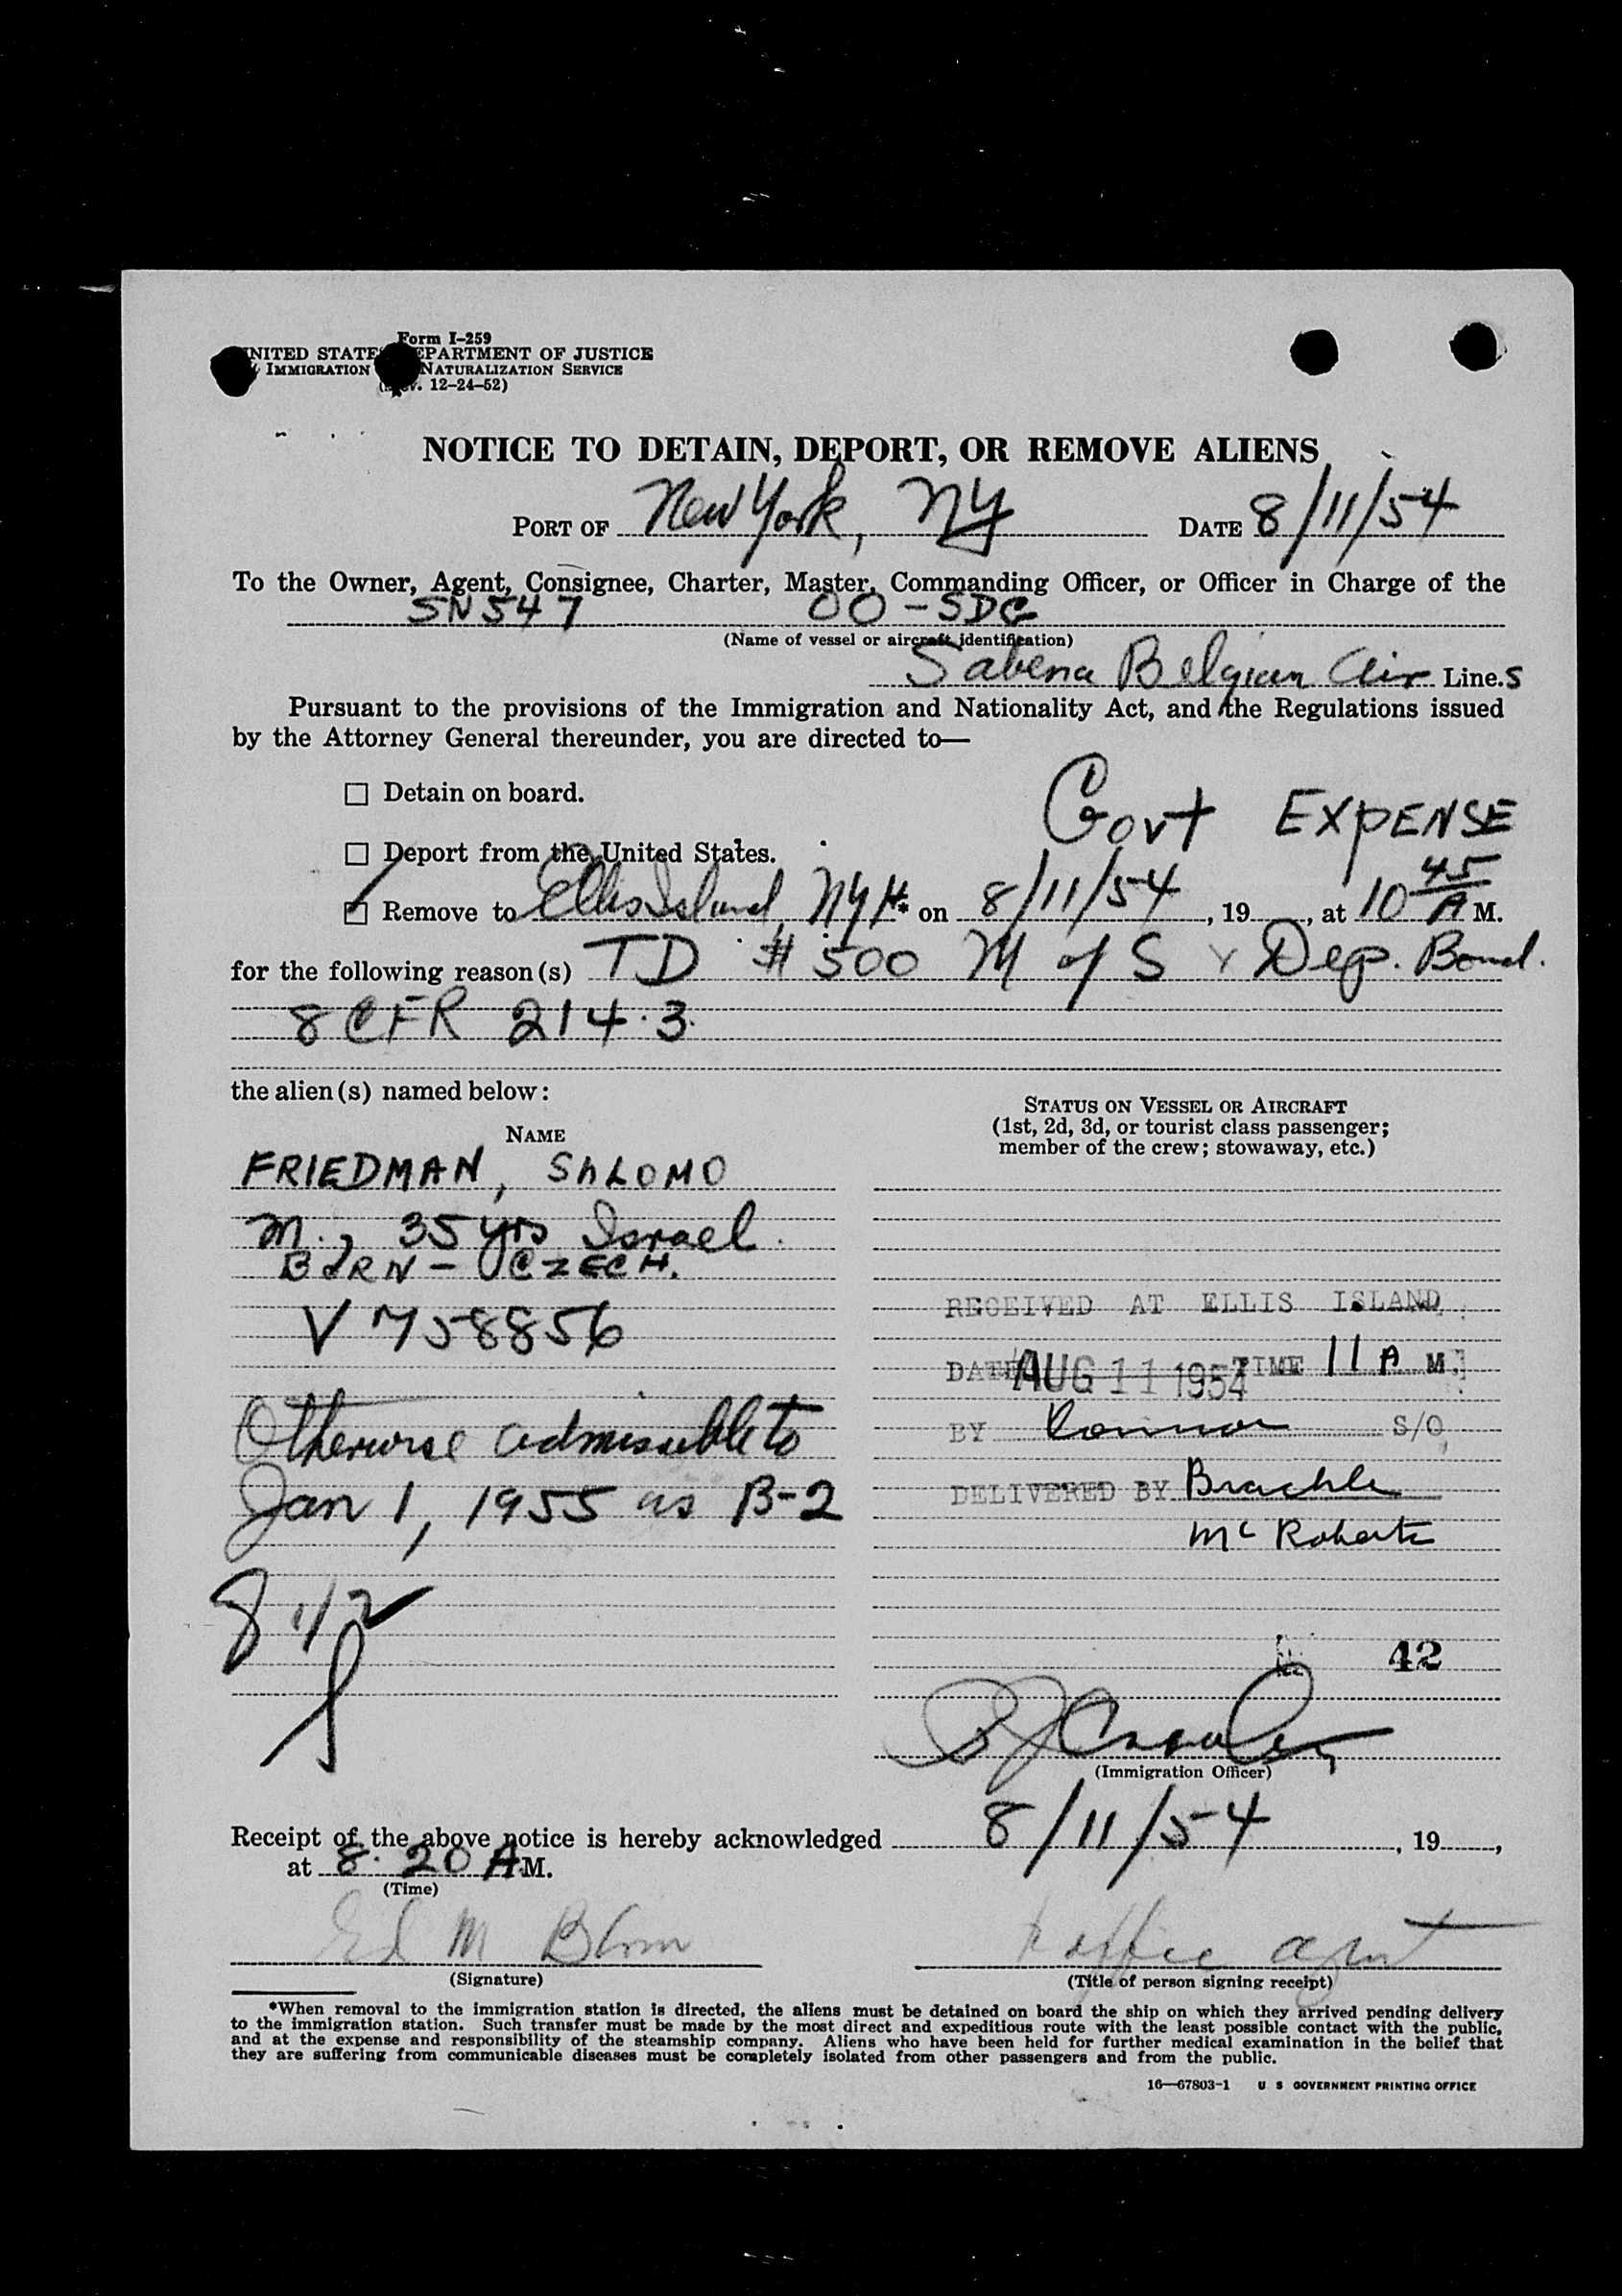 Form I-259
UNITED STATES DEPARTMENT OF JUSTICE
IMMIGRATION NATURALIZATION SERVICE
12-24-52)
NOTICE TO DETAIN, DEPORT, OR REMOVE ALIENS
PORT OF New York, NY DATE 8/11/54
To the Owner, Agent, Consignee, Charter, Master, Commanding Officer, or Officer in Charge of the
SN547 OO-SDC
(Name of vessel or aircraft identification)
Sabena Belgian Air Line.s
Pursuant to the provisions of the Immigration and Nationality Act, and the Regulations issued
by the Attorney General thereunder, you are directed to—
☐ Detain on board.
Govt EXPENSE
☐ Deport from the United States.
☑ Remove to Ellis Island, NYH* on 8/11/54, 19, at 10 45 A M.
for the following reason(s) TD # 500 M of S & Dep. Bond.
8 CFR 214.3.
the alien(s) named below:
NAME
STATUS ON VESSEL OR AIRCRAFT
(1st, 2d, 3d, or tourist class passenger;
member of the crew; stowaway, etc.)
FRIEDMAN, SALOMO
M., 35 yrs Israel.
BORN - CZECH.
V 758856
Otherwise admissible to
Jan 1, 1955 as B-2
8 1/2
RECEIVED AT ELLIS ISLAND
DATE AUG 11 1954 TIME 11 A M.
BY Connor S/O
DELIVERED BY
McRoberts
42
(Immigration Officer)
Receipt of the above notice is hereby acknowledged 8/11/54, 19,
at 8:20 A M.
(Time)
Ed M Blom traffic agent
(Signature) (Title of person signing receipt)
*When removal to the immigration station is directed, the aliens must be detained on board the ship on which they arrived pending delivery
to the immigration station. Such transfer must be made by the most direct and expeditious route with the least possible contact with the public,
and at the expense and responsibility of the steamship company. Aliens who have been held for further medical examination in the belief that
they are suffering from communicable diseases must be completely isolated from other passengers and from the public.
16—67803-1 U S GOVERNMENT PRINTING OFFICE